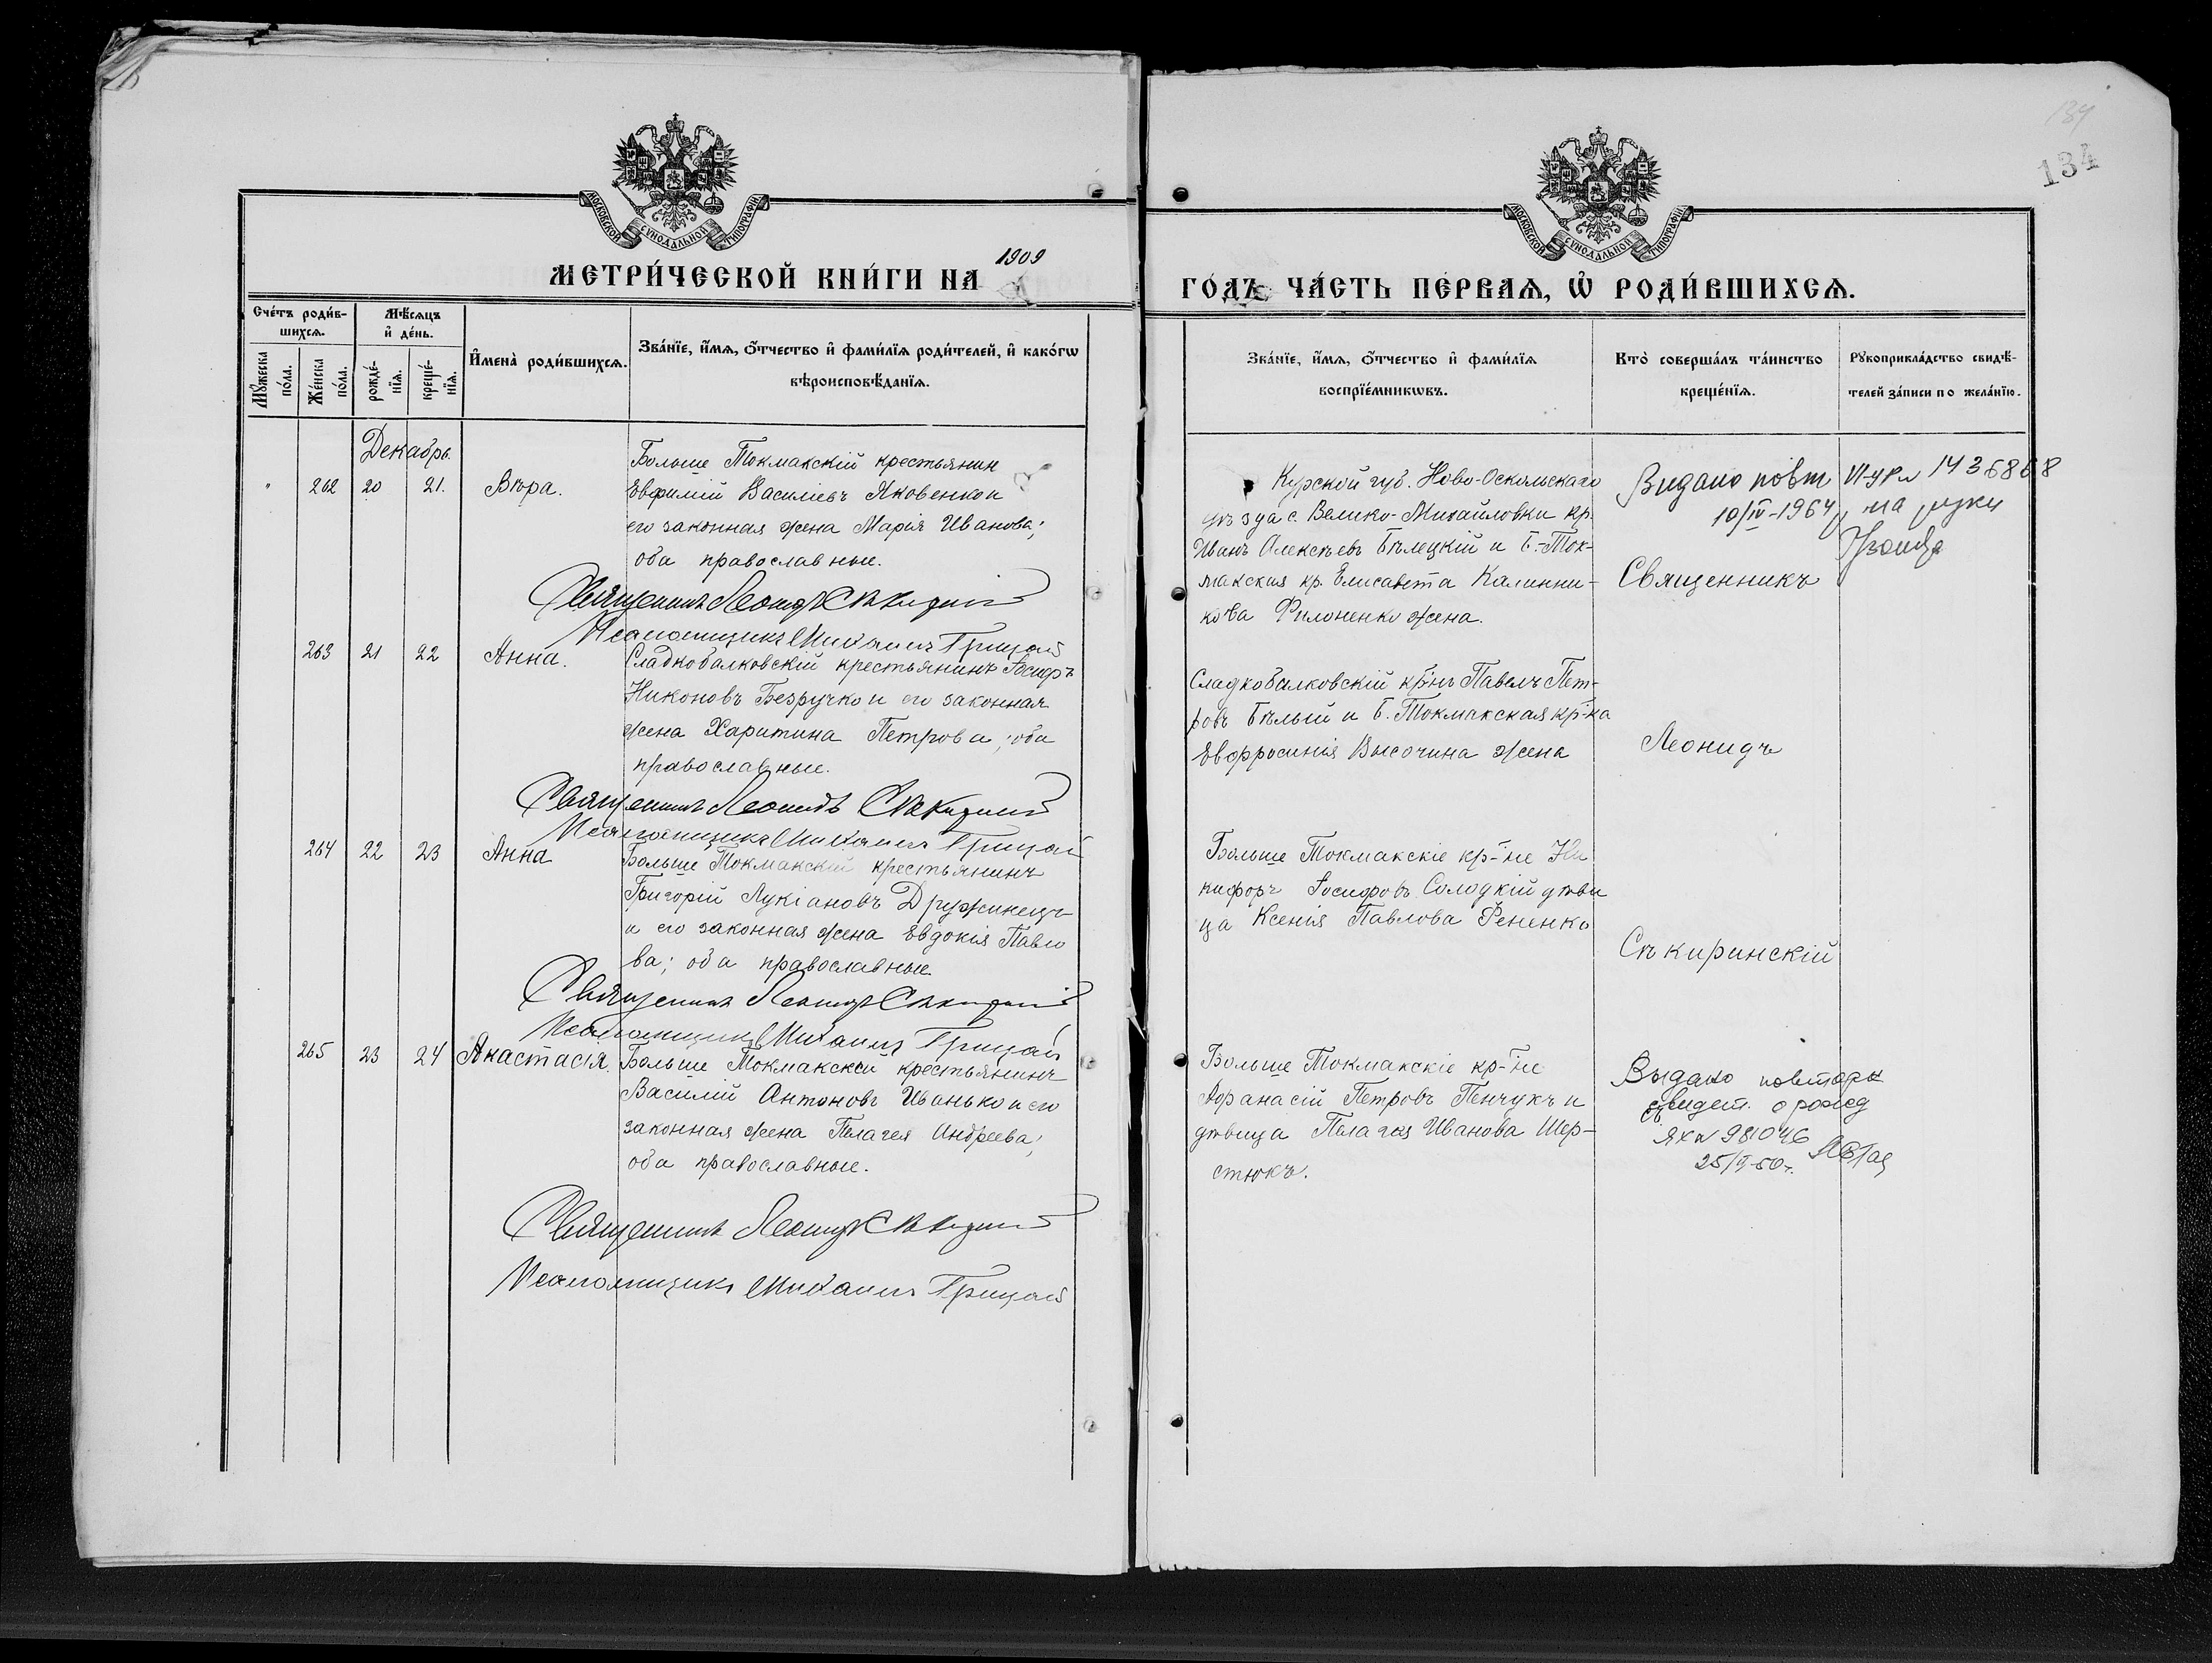 134
134
МОСКОВСКОЙ СѴНОДАЛЬНОЙ ТИПОГРАФІИ
МОСКОВСКОЙ СѴНОДАЛЬНОЙ ТИПОГРАФІИ
МЕТРИ́ЧЕСКОЙ КНИ́ГИ НА 1909
ГО́ДЪ ЧА́СТЬ ПЕ́РВАѦ, Ѽ РОДИ́ВШИХСѦ.
Сче́тъ роди́в-
шихсѧ.
Мꙋ́жеска
по́ла.
Же́нска
по́ла.
Мѣ́сѧцъ
и҆ де́нь.
рожде́-
нїѧ.
креще́-
нїѧ.
И҆мена̀ роди́вшихсѧ.
Зва́нїе, и҆́мѧ, ѻ҆́тчество и҆ фами́лїѧ роди́телей, и҆ како́гѡ
вѣроисповѣ́данїѧ.
Зва́нїе, и҆́мѧ, ѻ҆́тчество и҆ фами́лїѧ
воспрїе́мникѡвъ.
Кто̀ соверша́лъ та́инство
креще́нїѧ.
Рꙋкоприкла́дство свидѣ́-
телей за́писи по жела́нїю.
Декабрь.
" 262 20 21. Вѣра.
Больше Токмакскій крестьянин
Евфимій Василіевъ Яковенко и
его законная жена Марія Иванова;
оба православные.
Священникъ Леонидъ Сѣкиринскій
Псаломщикъ Михаилъ Грицай
Курской губ. Ново-Оскольскаго
уѣзда с. Велико-Михайловки кр.
Иванъ Алексѣевъ Бѣлецкій и Б.-Ток-
макская кр. Елисавета Калинни-
кова Филоненко жена.
Видано повт VI-УР № 1436868
10/IV-1964 р. на руки
Священникъ
263 21 22 Анна.
Сладкобалковскій крестьянинъ Іосифъ
Никоновъ Безручко и его законная
жена Харитина Петрова; оба
православные.
Священникъ Леонидъ Сѣкиринскій
Псаломщикъ Михаилъ Грицай
Сладкобалковскій кр-нъ Павелъ Пет-
ровъ Бѣлый и Б. Токмакская кр-ка
Евфросинія Высочина жена
Леонидъ
264 22 23 Анна
Больше Токмакскій крестьянинъ
Григорій Лукіановъ Дружинецъ
и его законная жена Евдокія Павло
ва; оба православные.
Священникъ Леонидъ Сѣкиринскій
Псаломщикъ Михаилъ Грицай
Больше Токмакскіе кр-не Ни
кифоръ Іосифовъ Солодкій дѣви
ца Ксенія Павлова Фененко
Сѣкиринскій
265 23 24 Анастасія.
Больше Токмакскій крестьянинъ
Василій Антоновъ Иванько и его
законная жена Пелагея Андреева;
оба православные.
Священникъ Леонидъ Сѣкиринскій
Псаломщикъ Михаилъ Грицай
Больше Токмакскіе кр-не
Афанасій Петровъ Пенчукъ и
дѣвица Пелагея Иванова Шер-
стюкъ.
Выдано повторн
свидет. о рожд
ЯХ № 981046
25/V-50 г.